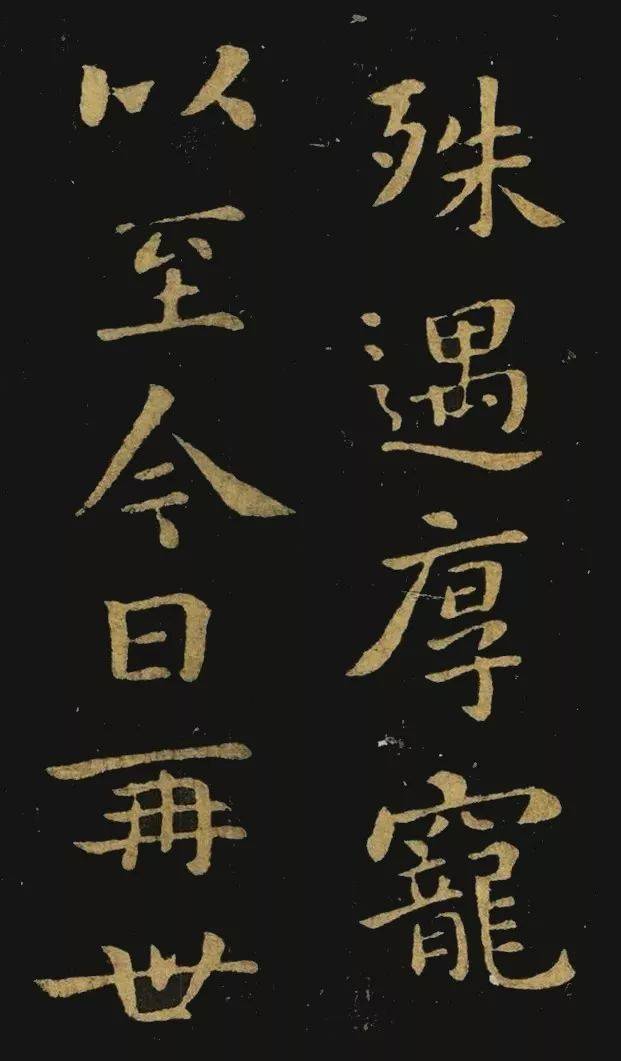 殊遇厚寵
以至今日再世